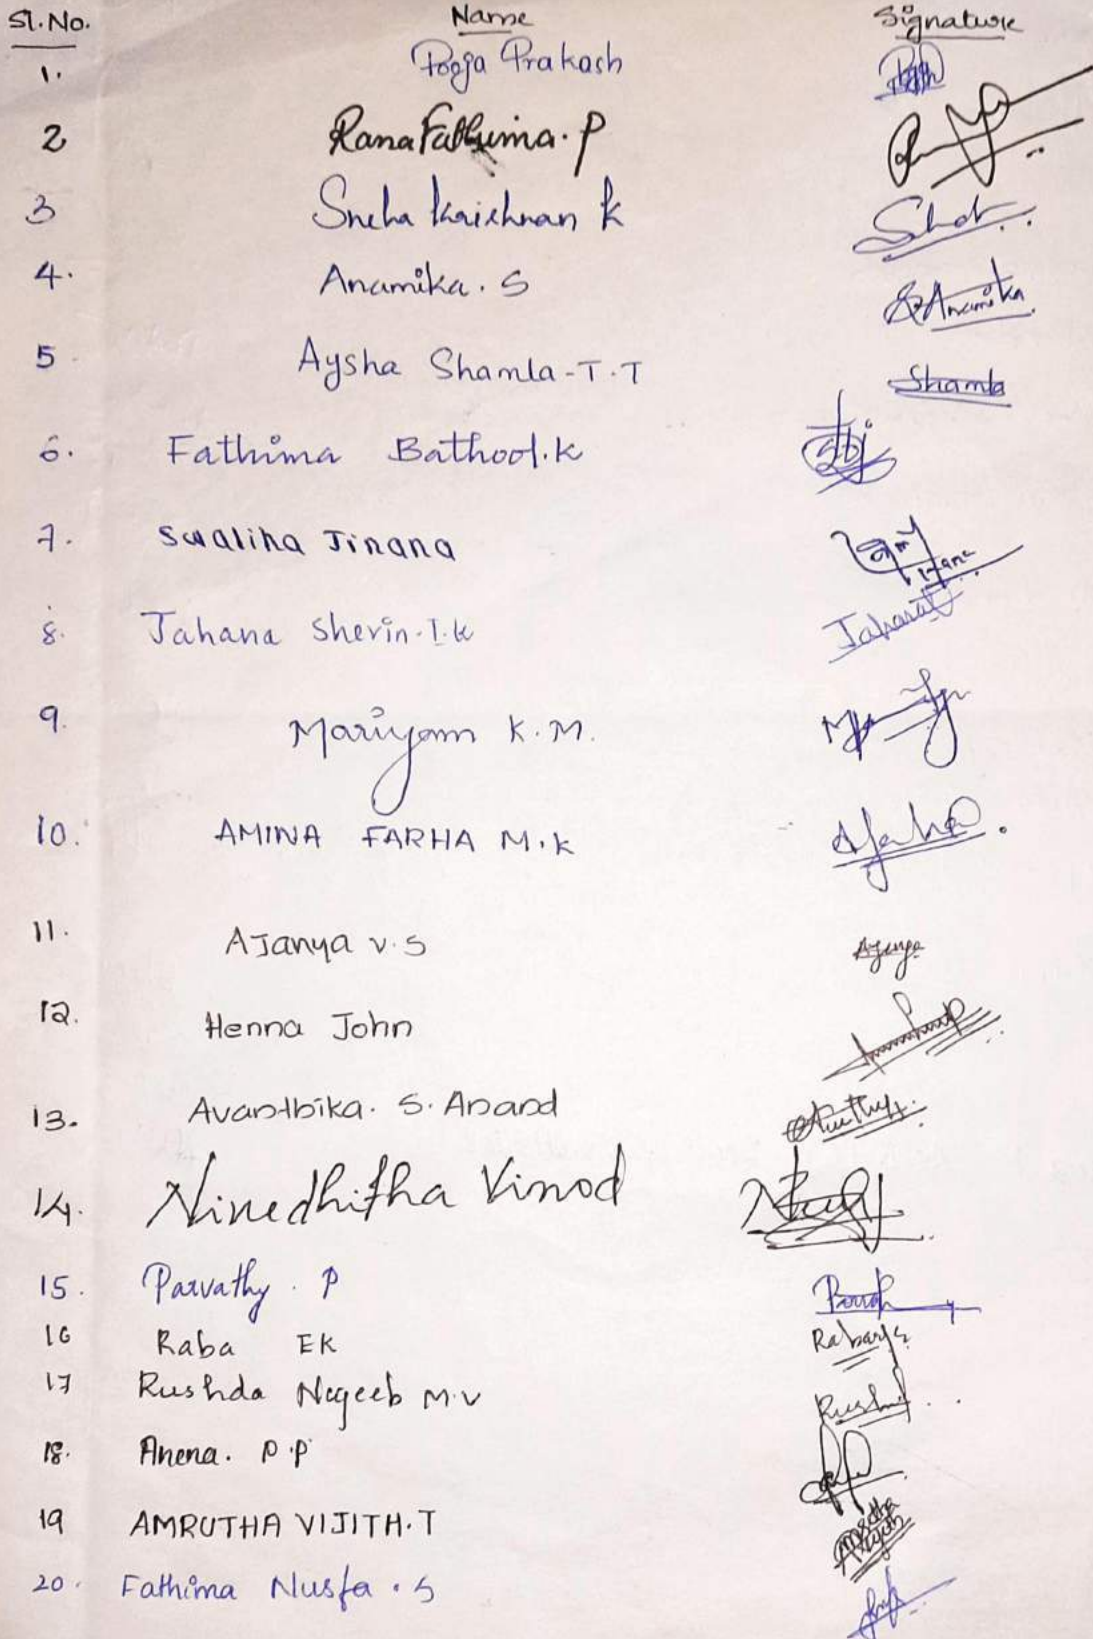 Sl. No. Name Signature
1. Pooja Prakash
2 Rana Fathima. P
3 Sneha Krishnan K
4. Anamika. S Anamika
5 Aysha Shamla-T.T Shamla
6. Fathima Bathool.K
7. Swaliha Jinana
8. Jahana Sherin.I.K
9. Mariyam K.M.
10. AMINA FARHA M.K
11. AJanya v.s
12. Henna John
13. Avanthika. S. Anand
14. Nivedhitha Vinod
15. Parvathy. P
16 Raba EK
17 Rushda Nageeb M.V
18. Anena. P.P
19 AMRUTHA VIJITH.T Amrutha Vijith
20. Fathima Nusfa.S